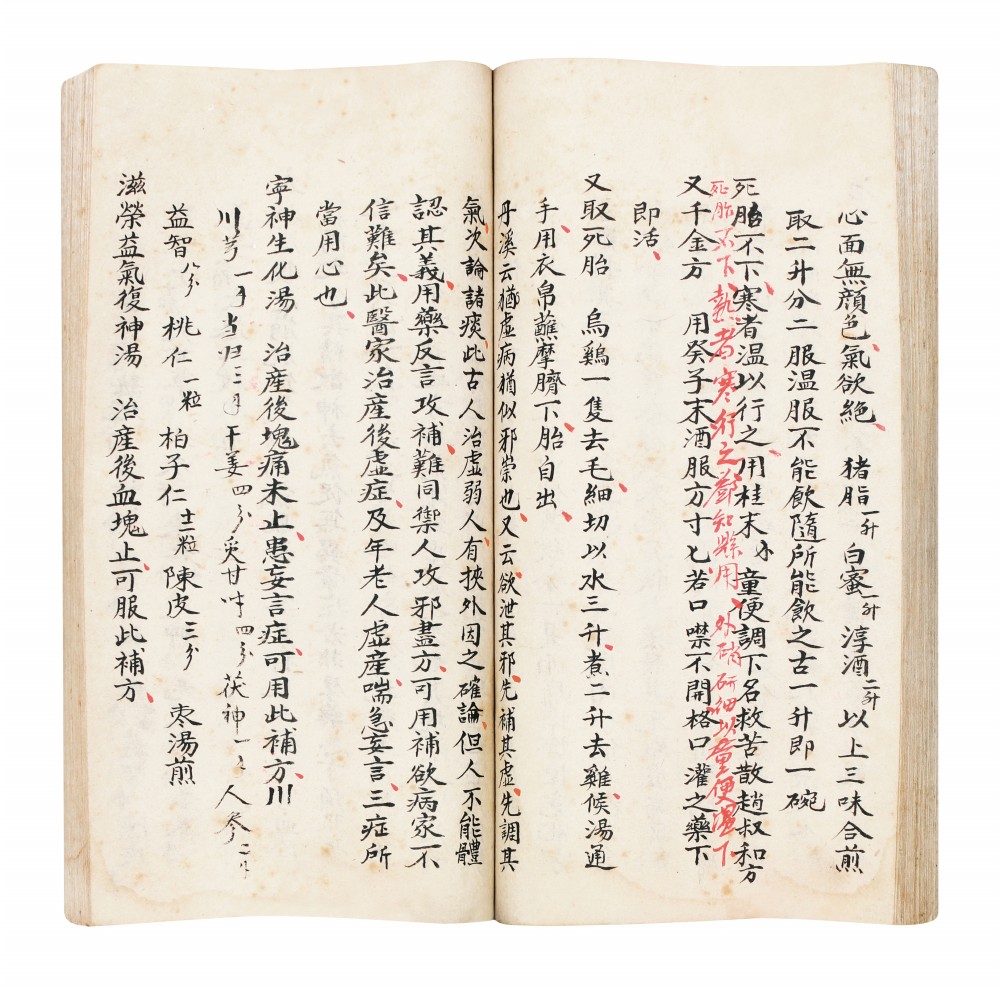 心面無顔色氣欲絕　猪脂一升　白蜜一升　淳酒二升　以上三味合煎
取二升分二服温服不能飲隨所能飲之古一升即一碗
死胎不下寒者温以行之用桂末　童便調下名救苦散趙叔和方
死胎不下熱者寒行之鄭知縣用外硝研細以童便温下
又千金方　用癸子末酒服方寸匕若口噤不開格口灌之藥下
即活
又取死胎　烏鷄一隻去毛細切以水三升煮二升去雞候湯通
手用衣帛蘸摩臍下胎自出
丹溪云虚病猶似邪祟也又云欲泄其邪先補其虚先調其
氣次論諸痰此古人治虚弱人有挾外因之確論但人不能體
認其義用藥反言攻補難同禦人攻邪盡方可用補欲病家不
信難矣此醫家治産後虚症及年老人虚産喘急妄言三症所
當用心也
寧神生化湯　治産後塊痛未止患妄言症可用此補方川
川芎一　当归三　干姜四分　炙甘艸四分　茯神一　人參二
益智八分　桃仁一粒　柏子仁十一粒　陳皮三分　枣湯煎
滋榮益氣復神湯　治産後血塊止可服此補方